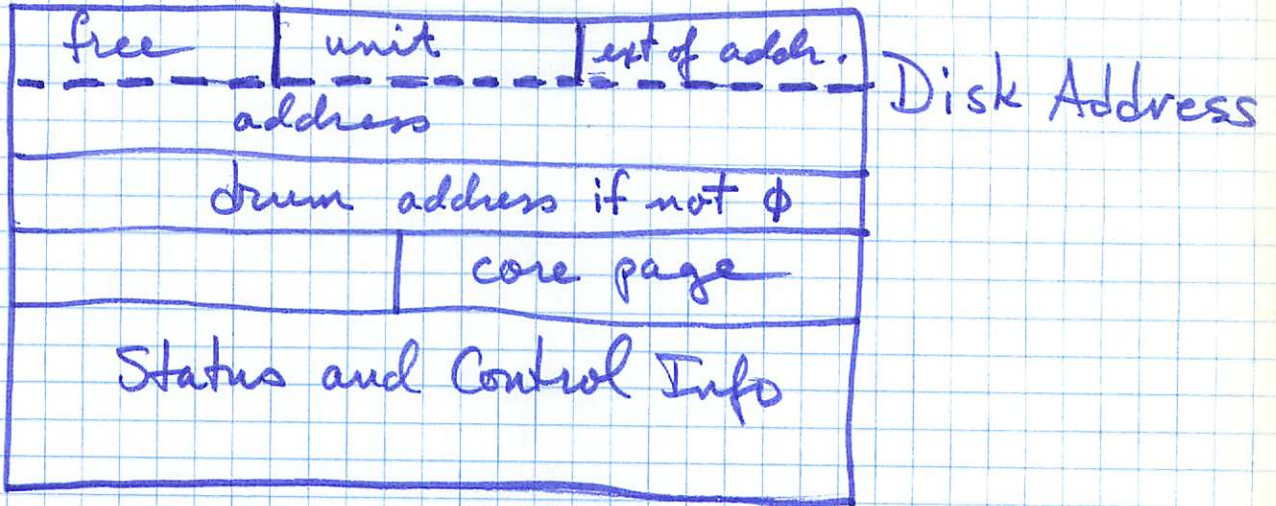 free unit ext of addr.
Disk Address
address
drum address if not ϕ
core page
Status and Control Info